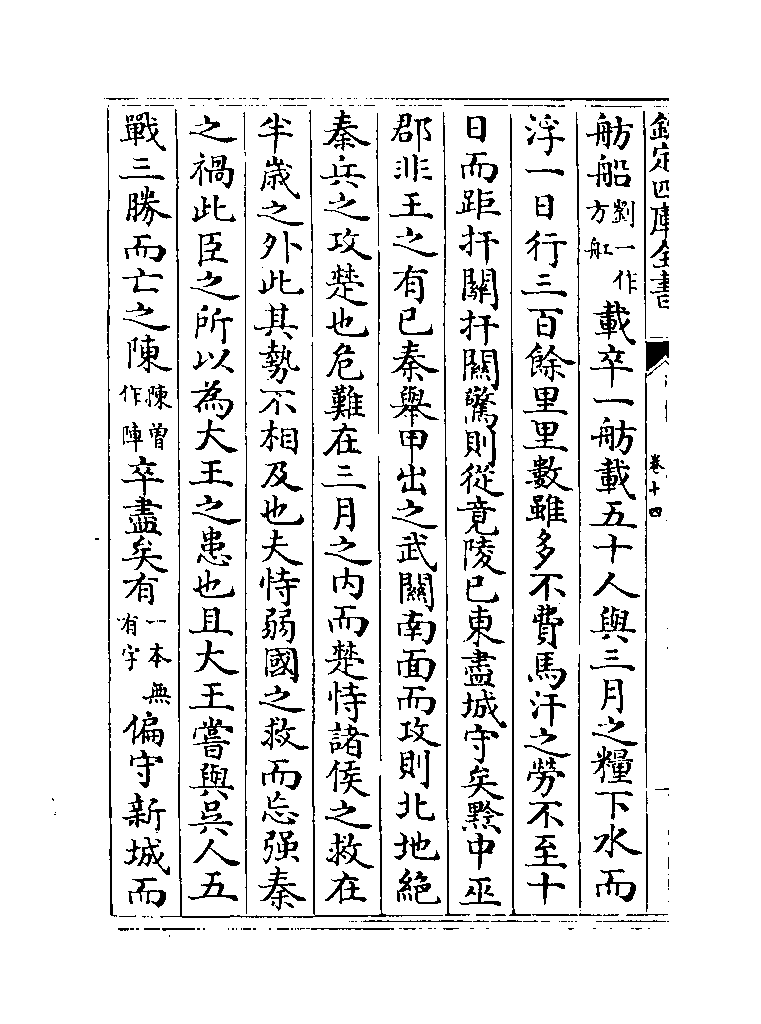 欽定四庫全書
卷十四
舫船劉一作方舡載卒一舫載五十人與三月之糧下水而
浮一日行三百餘里里數雖多不費馬汗之勞不至十
日而距扞關扞關驚則從竟陵已東盡城守矣黔中巫
郡非王之有已秦舉甲出之武關南面而攻則北地絕
秦兵之攻楚也危難在三月之內而楚恃諸侯之救在
半歲之外此其勢不相及也夫恃弱國之救而忘强秦
之禍此臣之所以為大王之患也且大王嘗與吳人五
戰三勝而亡之陳陳曽作陣卒盡矣有一本無有字偏守新城而